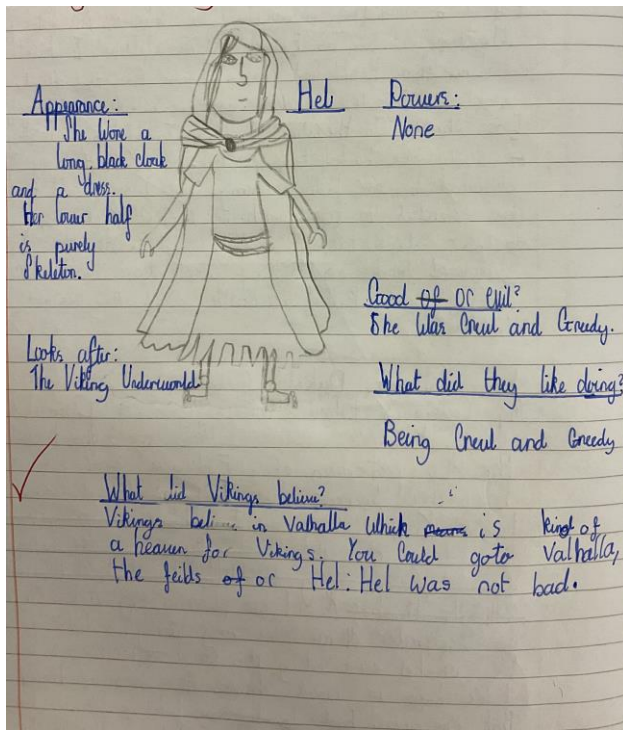 Hel
Appearance:
She Wore a
long, black cloak
and a dress.
Her lower half
is purely
Skeleton.
Powers:
None
Good of or evil?
She Was Creul and Greedy.
Looks after:
The Viking Underworld.
What did they like doing?
Being Creul and Greedy
What did Vikings believe?
Vikings in Valhalla Which means is kind of
a heaven for Vikings. You Could goto Valhalla,
the feilds of or Hel: Hel was not bad.